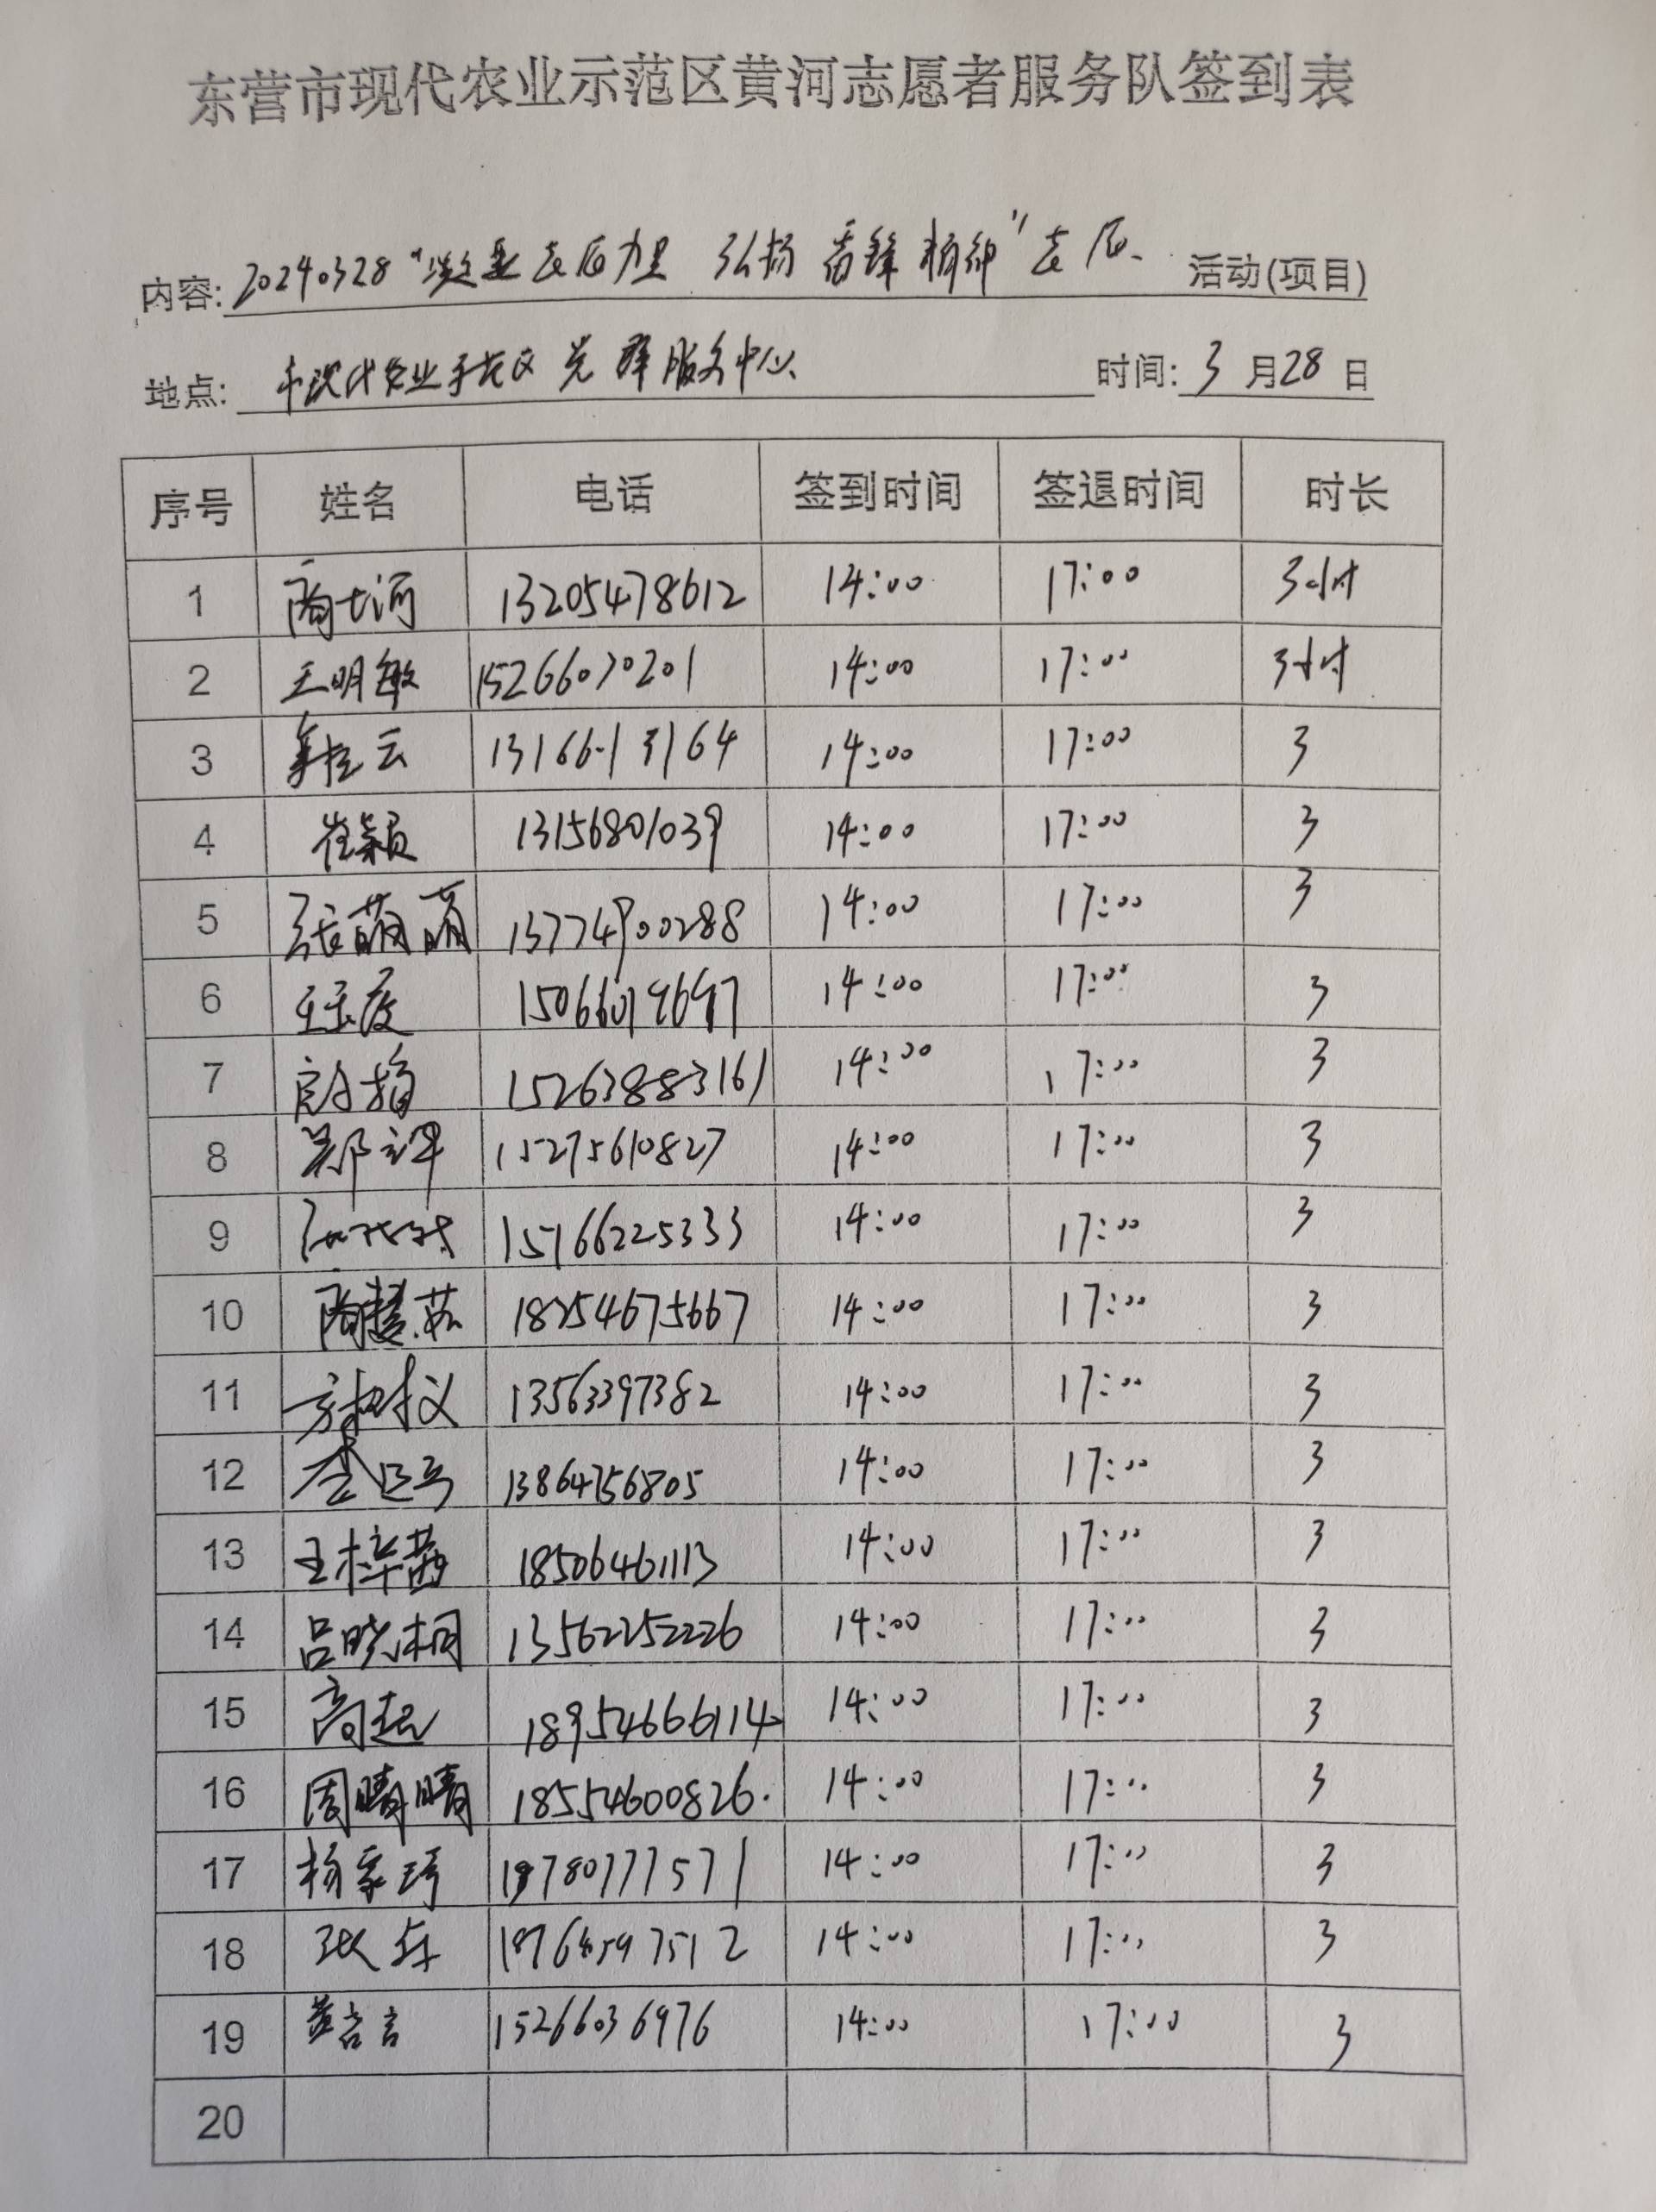 东营市现代农业示范区黄河志愿者服务队签到表
内容: 20240328“凝聚志愿力量 弘扬雷锋精神”志愿 活动(项目)
地点: 市现代农业示范区党群服务中心 时间: 3月28日
序号 姓名 电话 签到时间 签退时间 时长
1 商大河 13205478612 14:00 17:00 3小时
2 王明敏 15266070201 14:00 17:00 3小时
3 14:00 17:00 3
4 崔颖 13156801039 14:00 17:00 3
5 张萌萌 13774900288 14:00 17:00 3
6 15066079697 14:00 17:00 3
7 15263883161 14:00 17:00 3
8 15275610827 14:00 17:00 3
9 15166225333 14:00 17:00 3
10 商慧茹 18254675667 14:00 17:00 3
11 13563397382 14:00 17:00 3
12 13864756805 14:00 17:00 3
13 王梓茜 18506461113 14:00 17:00 3
14 吕晓桐 13562252226 14:00 17:00 3
15 高超 18954666114 14:00 17:00 3
16 周晴晴 18554600826 14:00 17:00 3
17 杨家琦 14:00 17:00 3
18 14:00 17:00 3
19 黄言言 15266036976 14:00 17:00 3
20